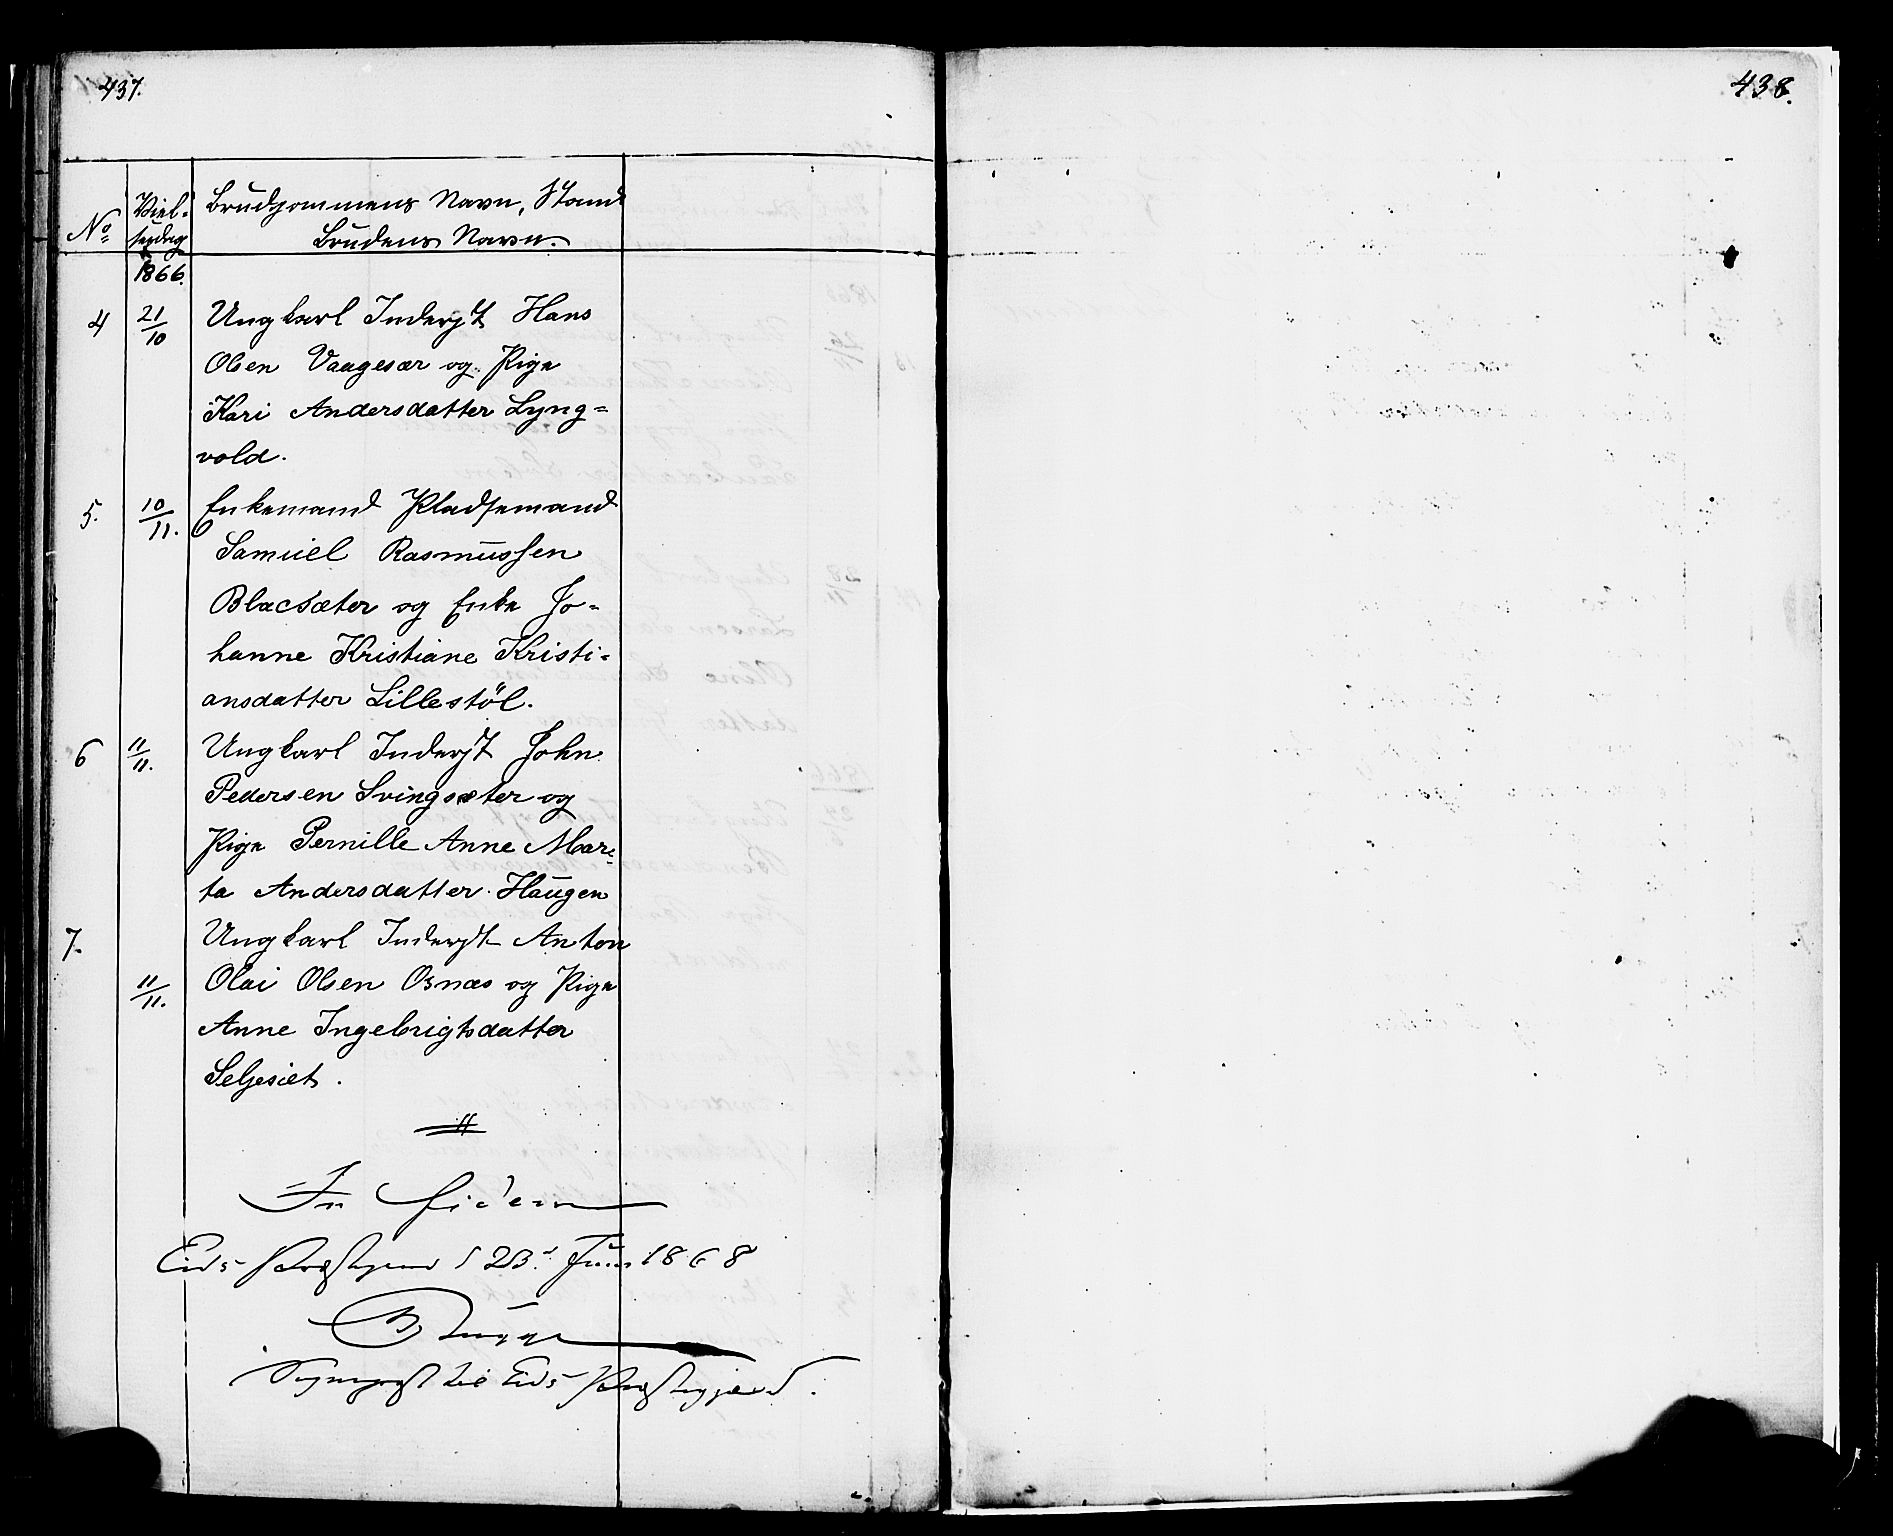 437.
438.
No
Viel-
sesdag
Brudgommens Navn, Stand
Brudens Navn.
1866.
4
21/10
Ungkarl Inderst Hans
Olsen Vaagesær og Pige
Kari Andersdatter Lyng=
vold.
5.
10/11.
Enkemand Pladsemand
Samuel Rasmussen
Blacsæter og Enke Jo-
hanne Kristiane Kristi-
ansdatter Lillestöl.
6
11/11.
Ungkarl Inderst John
Pedersen Svingsæter og
Pige Pernille Anne Mar-
ta Andersdatter Haugen
7.
Ungkarl Inderst Anton
11/11.
Olai Olsen Osnæs og Pige
Anne Ingebrigtsdatter
Seljesæt.
In fidem
Eids Præstegjeld d 23d Juni 1868
Sognepræst til Eids Præstegjæld.